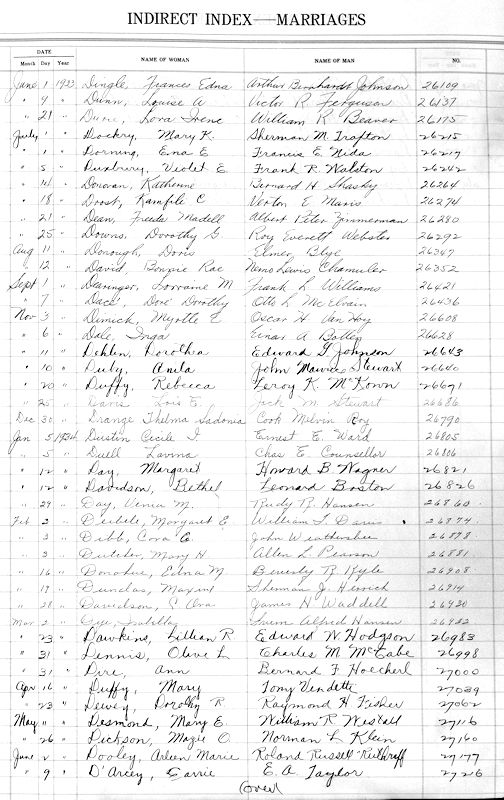 INDIRECT INDEX—MARRIAGES
DATE
Month Day Year NAME OF WOMAN NAME OF MAN NO.
June 1 1933 Dingle, Frances Edna Arthur Bernhardt Johnson 26109
" 9 " Dunn, Louise A Victor R Ferguson 26137
" 21 " Dunn, Lora Irene William R Beaver 26175
July 1 " Dockry, Mary K. Sherman M Trafton 26215
" 1 " Dorning, Ena E Francis E Nida 26217
" 5 " Duxbury, Violet E Frank R Walston 26242
" 14 " Donovan, Katherine Bernard H Shasky 26264
" 18 " Drost, Kample C Verton E Maris 26274
" 21 " Dean, Freda Madell Albert Peter Zimmerman 26280
" 25 " Downs, Dorothy G Roy Everett Webster 26292
Aug 11 " Donough, Doris Elmer Blye 26347
" 12 " David, Bonnie Rae Nemo Lewis 26352
Sept 1 " Lorraine M Frank L Williams 26421
" 7 " Dace, Dore Dorothy Otto L McElvain 26436
Nov 3 " Dimick, Myrtle E Oscar H Van Hoy 26608
" 6 " Dale, Inga Einar A 26628
" 11 " Dehlin, Dorothea Edward G Johnson 26643
" 10 " Duby, Anita John Maurice Stewart 26640
" 20 " Duffy, Rebecca Leroy K McKown 26671
" 25 " Davis, Lois E. Jack M. Stewart 26686
Dec 30 " Drange Thelma Ladonia Cook Melvin Roy 26790
Jan 5 1934 Dustin Cecile I Ernest E. Ward 26805
" 5 " Duell Lavina Chas E. Counsellor 26806
" 12 " Day, Margaret Howard B Wagner 26821
" 12 " Davidson, Bethel Leonard Boston 26826
" 29 " Day, Venia M. Rudy R. Hansen 26860
Feb 2 " Margaret E William L Davis 26874
" 3 " Dibb, Cora E John 26878
" 3 " Dutcher, Mary H Allen L Pearson 26881
" 16 " Donohue, Edna M. Beverly R Kyle 26908
" 19 " Dundas, Maxine Sherman J. Herrick 26914
" 28 " Davidson, E Ora James H Waddell 26930
Mar 2 " Isabelle Alfred Hansen
" 23 " Dawkins, Lillian R Edward W Hodgson 26983
" 31 " Dennis, Olive L Charles M McCabe 26998
" 31 " Dire, Ann Bernard F Hoecherl 27000
Apr 16 " Duffy, Mary Tony Vendette 27039
" 23 " Dewey, Dorothy R. Raymond H Fisher 27062
May 11 " Desmond, Mary E. William R Westall 27116
" 26 " Dickson, Mazie O Norman L Klein 27160
June 2 " Dooley, Arleen Marie Roland Russell Ruthraff 27177
" 9 " D'Arcy, Carrie E. A. Taylor 27216
(over)